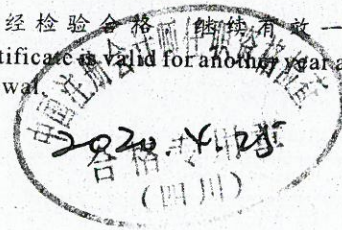 经检验合格 继续有效一
tificate is valid for another year a
wal.
2020.4.25
合格专用章
（四川）